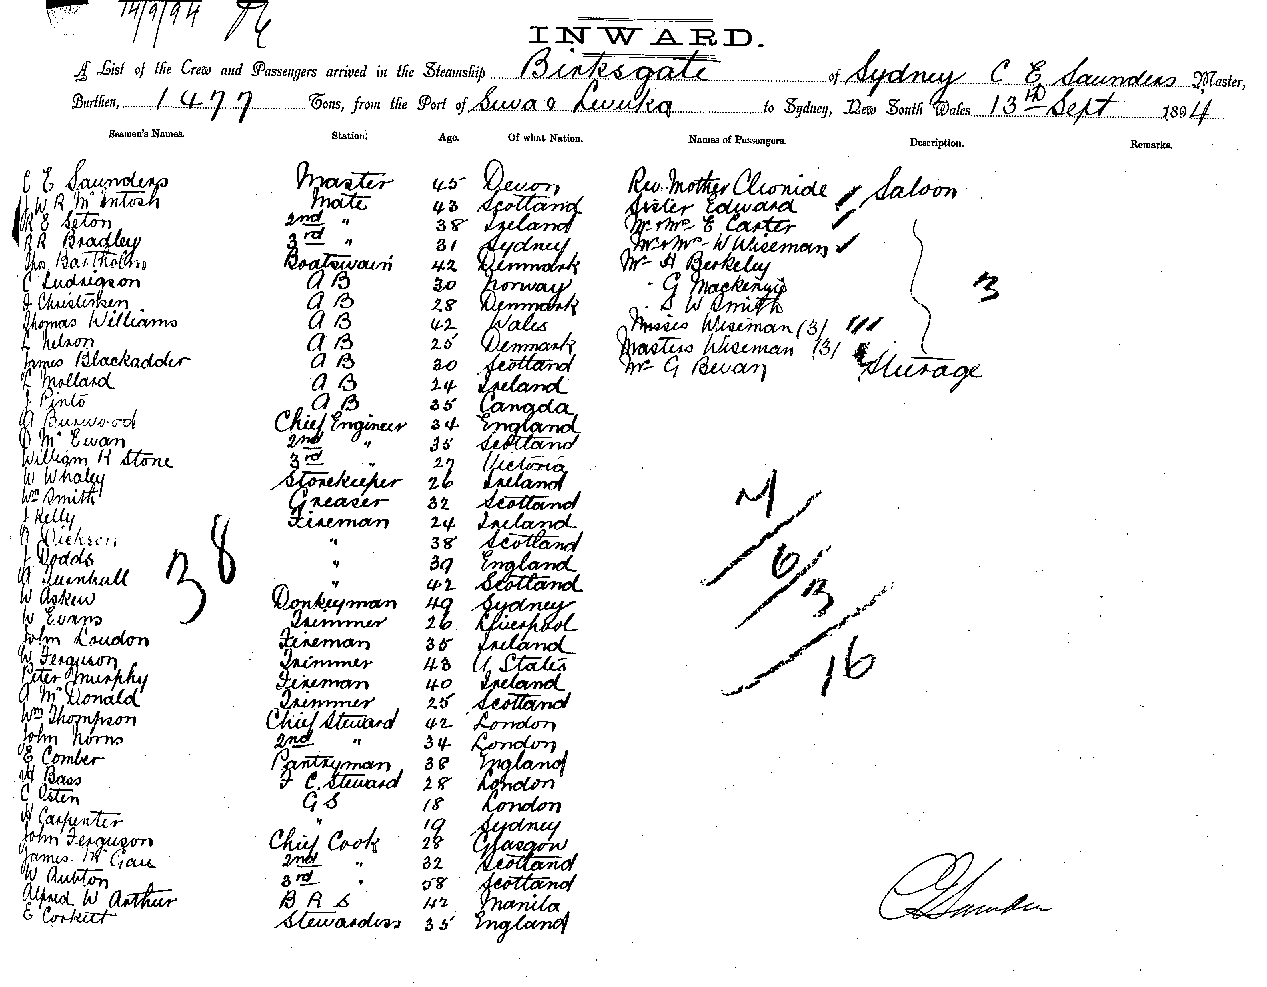 14/9/94
INWARD.
A List of the Crew and Passengers arrived in the Steamship Birksgate of Sydney C E Saunders Master,
Burthen, 1477 Tons, from the Port of Suva & Levuka to Sydney, New South Wales 13th Sept 1894
Seamen's Names. Station. Age. Of what Nation. Names of Passengers. Description. Remarks.
C E Saunders Master 45 Devon Rev. Mother Cleonide Saloon
J W R McIntosh Mate 43 Scotland Sister Edward
E Seton 2nd " 38 Ireland Mr & Mrs E Carter
R R Bradley 3rd " 31 Sydney Mr & Mrs W Wiseman
Boatswain 42 Denmark Mr H Berkeley
C Ludvigson A B 30 Norway " G Mackenzie 3
J Christensen A B 28 Denmark " S W Smith
Thomas Williams A B 42 Wales Misses Wiseman (3)
Nelson A B 25 Denmark Masters Wiseman (3)
James Blackadder A B 30 Scotland Mr G Bevan Steerage
Mollard A B 24 Ireland
J Pinto A B 35 Canada
A Burwood Chief Engineer 34 England
McEwan 2nd " 35 Scotland
William R Stone 3rd " 27 Victoria
W Whaley Storekeeper 26 Ireland
Wm Smith Greaser 32 Scotland
J Kelly Fireman 24 Ireland
Dickson " 38 Scotland
J Dodds " 39 England
Turnbull " 42 Scotland
W Askew Donkeyman 49 Sydney
W Evans Trimmer 26 Liverpool
John Loudon Fireman 35 Ireland
W Ferguson Trimmer 43 U States
Peter Murphy Fireman 40 Ireland
A McDonald Trimmer 25 Scotland
Wm Thompson Chief Steward 42 London
John Norris 2nd " 34 London
E Comber Pantryman 38 England
H Bass F C Steward 28 London
C Osten G S 18 London
H Carpenter " 19 Sydney
John Ferguson Chief Cook 28 Glasgow
James 2nd " 32 Scotland
W 3rd " 58 Scotland
Alfred W Arthur B R S 42 Manila
E Corkett Stewardess 35 England
38
7
6
3
16
C E Saunders